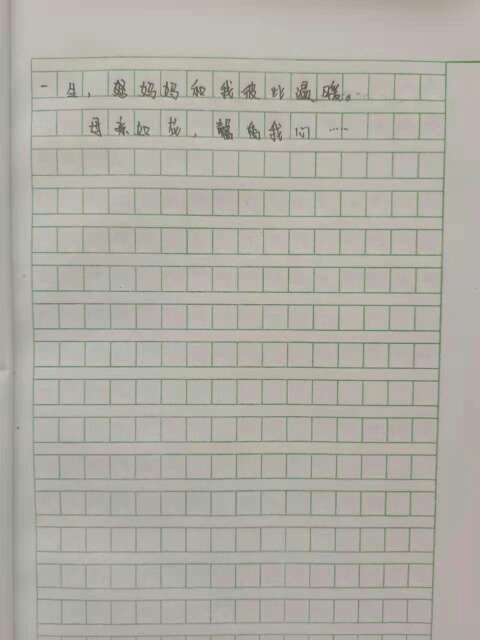 一生，愿妈妈和我彼此温暖。
母亲如花，馨香我心……